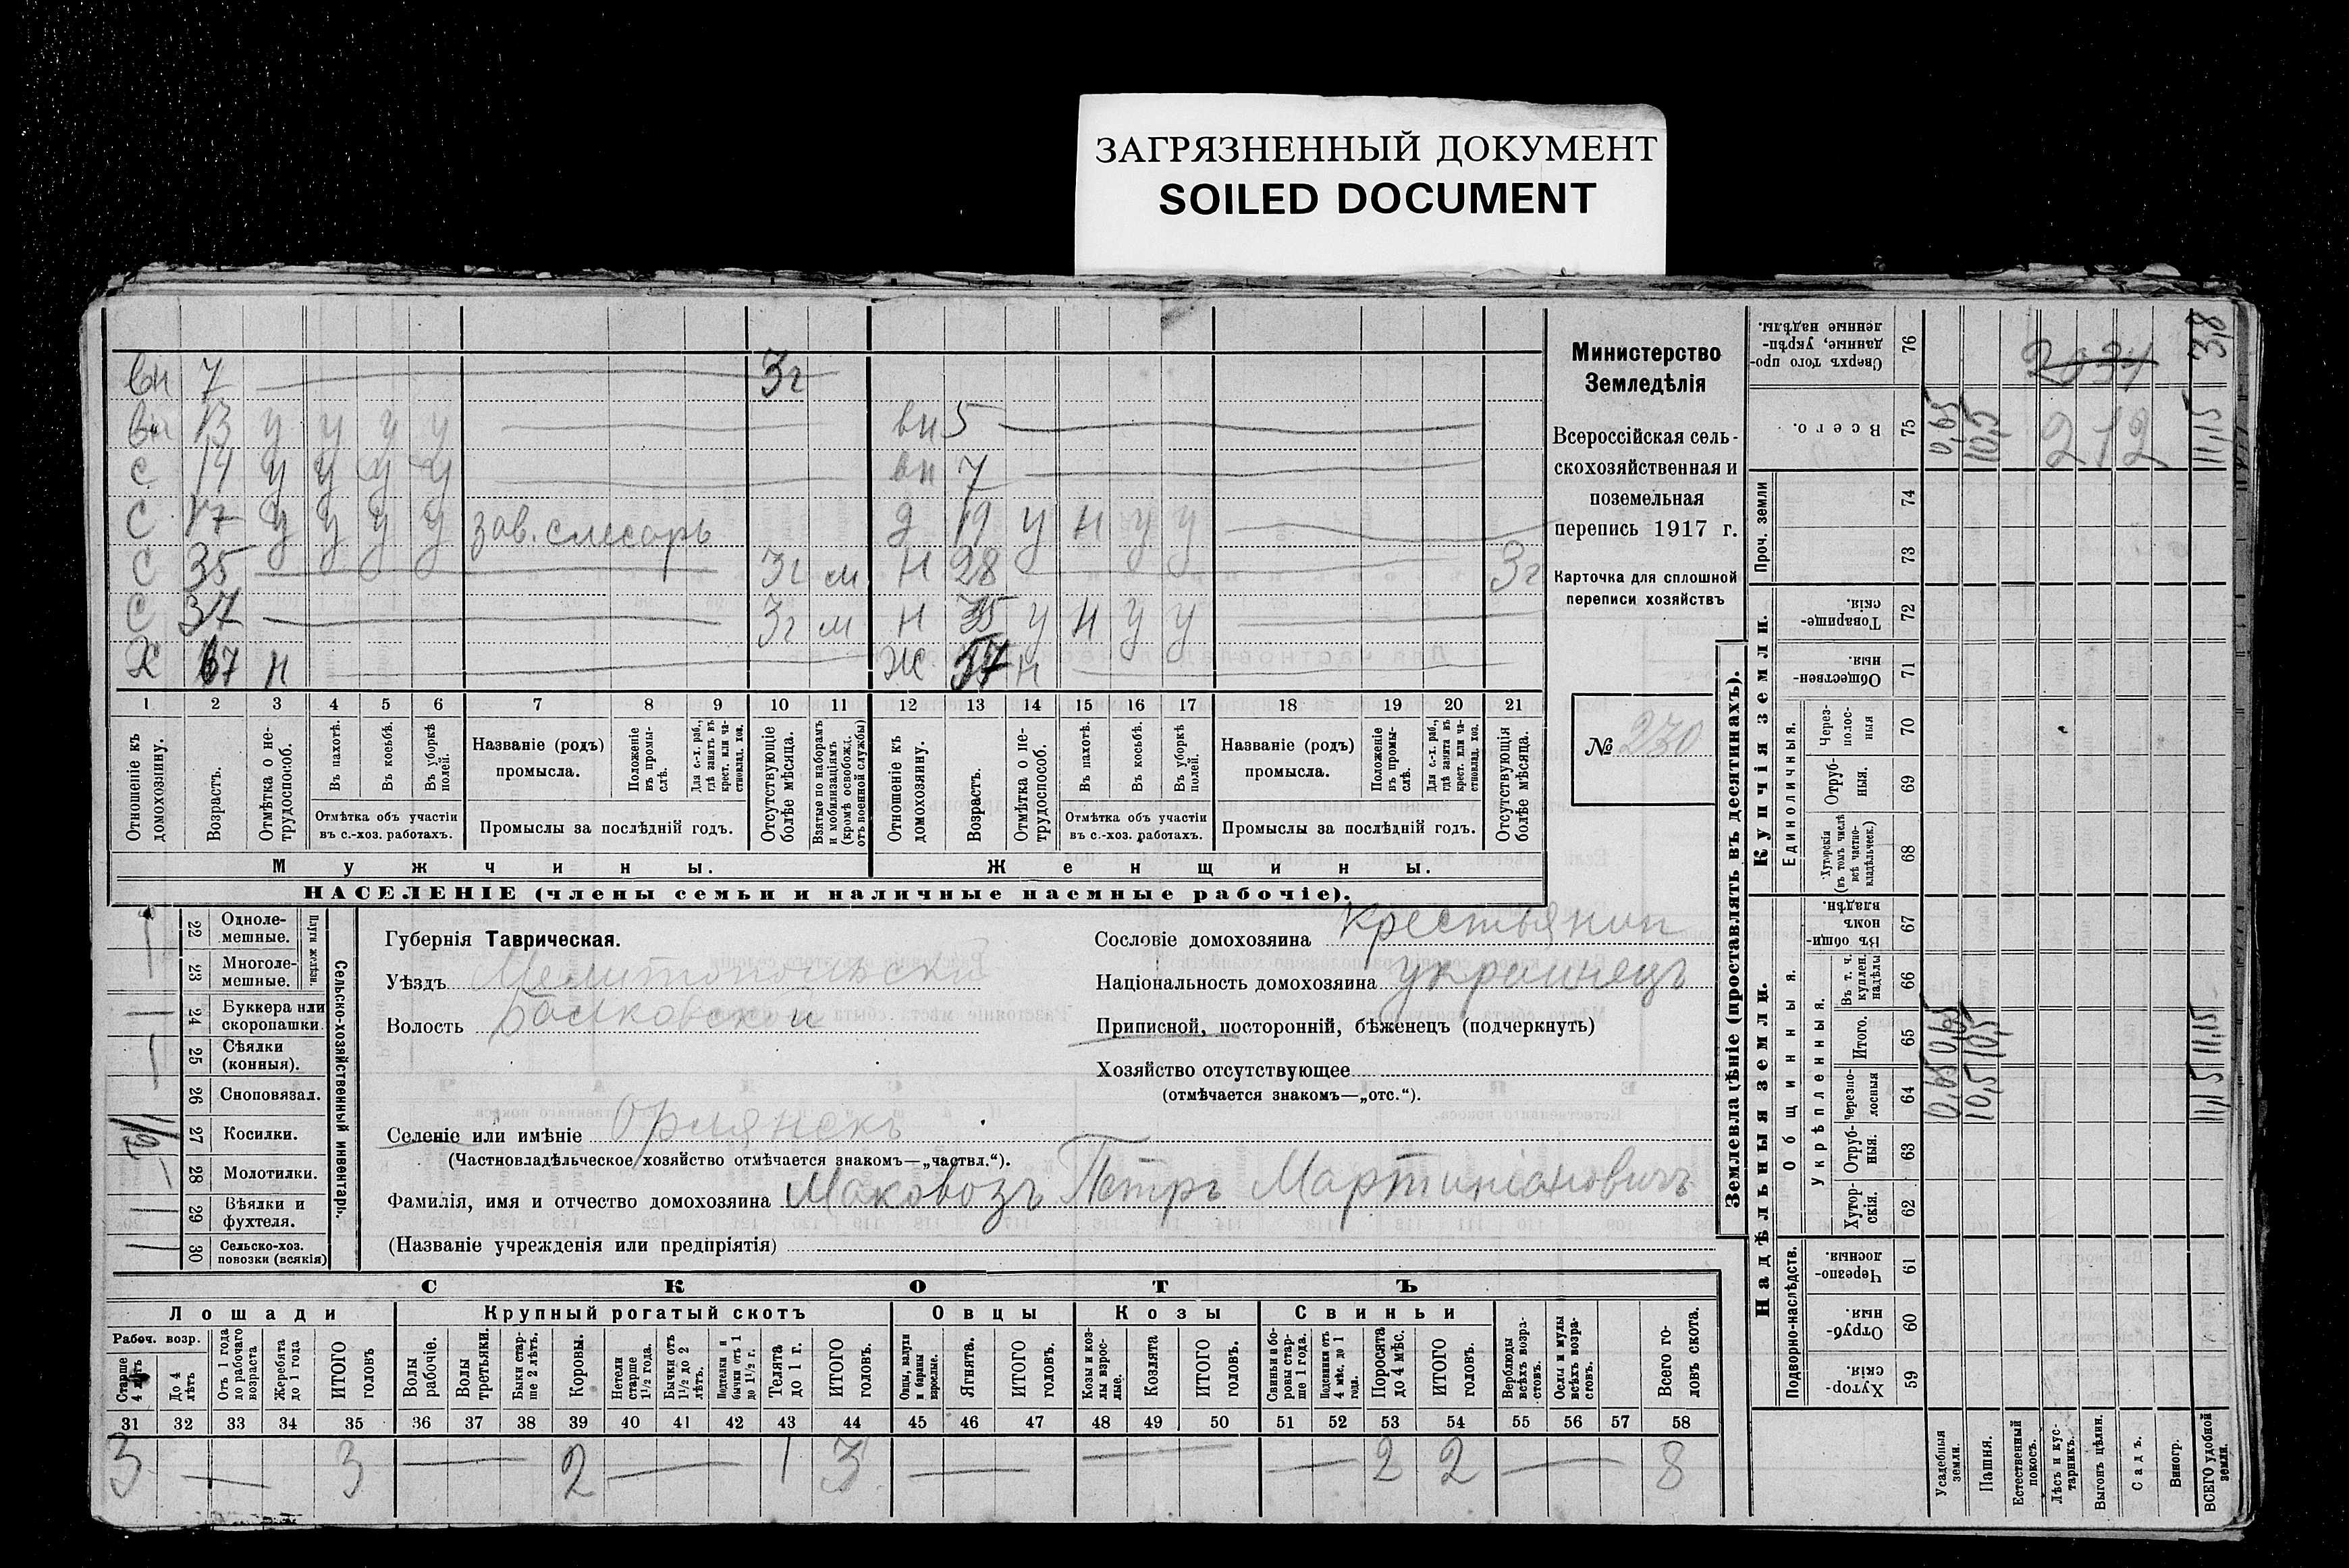 ЗАГРЯЗНЕННЫЙ ДОКУМЕНТ
SOILED DOCUMENT
вн 7 3г
вн 13 у у у у вн 5
с 14 у у у у вн 7
с 17 у у у у зав. слесарь д 19 у н у у
с 35 3г м н 28 3г
с 37 3г м н 35 у н у у
х 67 н ж 57 н
1 2 3 4 5 6 7 8 9 10 11 12 13 14 15 16 17 18 19 20 21
Отношеніе къ домохозяину.
Возрастъ.
Отмѣтка о нетрудоспособ.
Въ пахотѣ.
Въ косьбѣ.
Въ уборкѣ полей.
Отмѣтка объ участіи въ с.-хоз. работахъ.
Названіе (родъ) промысла.
Положеніе въ промыслѣ.
Для с.-х. раб., гдѣ занятъ въ крест. или частновлад. хоз.
Промыслы за послѣдній годъ.
Отсутствующіе болѣе мѣсяца.
Взятые по наборамъ и мобилизаціямъ (кромѣ освобожд. отъ военной службы)
Отношеніе къ домохозяину.
Возрастъ.
Отмѣтка о нетрудоспособ.
Въ пахотѣ.
Въ косьбѣ.
Въ уборкѣ полей.
Отмѣтка объ участіи въ с.-хоз. работахъ.
Названіе (родъ) промысла.
Положеніе въ промыслѣ.
Для с.-х. раб., гдѣ занята въ крест. или частновлад. хоз.
Промыслы за послѣдній годъ.
Отсутствующія болѣе мѣсяца.
Мужчины.
Женщины.
НАСЕЛЕНІЕ (члены семьи и наличные наемные рабочіе).
Министерство
Земледѣлія
Всероссійская сель-
скохозяйственная и
поземельная
перепись 1917 г.
Карточка для сплошной
переписи хозяйствъ
№ 230
22 Одноле-
мешные.
23 Многоле-
мешные.
Плуги желѣзн.
24 Буккера или
скоропашки.
25 Сѣялки
(конныя).
26 Сноповязал.
27 Косилки.
28 Молотилки.
29 Вѣялки и
фухтеля.
30 Сельско-хоз.
повозки (всякія)
Сельско-хозяйственный инвентарь.
Губернія Таврическая.
Уѣздъ Мелитопольскій
Волость
Селеніе или имѣніе Орлянскъ
(Частновладѣльческое хозяйство отмѣчается знакомъ—„частвл.“).
Фамилія, имя и отчество домохозяина Маковозъ Петръ Мартиніановичъ
(Названіе учрежденія или предпріятія)
Сословіе домохозяина крестьянин
Національность домохозяина украинецъ
Приписной, посторонній, бѣженецъ (подчеркнуть)
Хозяйство отсутствующее
(отмѣчается знакомъ—„отс.“).
СКОТЪ
Лошади
Крупный рогатый скотъ
Овцы
Козы
Свиньи
Рабоч. возр.
Старше 4 лѣтъ
До 4 лѣтъ
Отъ 1 года до рабочаго возраста
Жеребята до 1 года
ИТОГО головъ
Волы рабочіе.
Волы третьяки.
Быки старше 2 лѣтъ.
Коровы.
Нетели старше 1½ года.
Бычки отъ 1½ до 2 лѣтъ.
Подтелки и бычки отъ 1 до 1½ г.
Телята до 1 г.
ИТОГО головъ.
Овцы, валухи и бараны взрослые.
Ягнята.
ИТОГО головъ.
Козы и козлы взрослые.
Козлята
ИТОГО головъ.
Свиньи и боровы старше 1 года.
Подсвинки отъ 4 мѣс. до 1 года.
Поросята до 4 мѣс.
ИТОГО головъ.
Верблюды всѣхъ возрастовъ.
Ослы и мулы всѣхъ возрастовъ.
Всего головъ скота.
31 32 33 34 35 36 37 38 39 40 41 42 43 44 45 46 47 48 49 50 51 52 53 54 55 56 57 58
3 3 2 1 3 2 2 8
Землевладѣніе (проставлять въ десятинахъ).
Купчія земли.
Надѣльныя земли.
Сверхъ того проданные, укрѣпленные надѣлы. 76 3,8
Всего. 75 0,65 10,5 212 11,15
Проч. земли
74
73
Товарищескія. 72
Общественныя 71
Единоличныя.
Черезполосныя 70
Отрубныя. 69
Хуторскія (въ томъ числѣ всѣ частновладѣльческ.) 68
Общинныя.
Въ общинномъ владѣн. 67
Укрѣпленныя.
Въ т. ч. куплен. надѣлы 66
Итого. 65 0,65 10,5 11,15
Черезполосныя 64 0,65 10,5 11,15
Отрубныя. 63
Хуторскія. 62
Подворно-наслѣдств.
Черезполосныя 61
Отрубныя 60
Хуторскія 59
Усадебныя земли.
Пашня.
Естественный покосъ.
Лѣсъ и кустарникъ.
Выгонъ цѣлин.
Садъ.
Виногр.
ВСЕГО удобной земли.